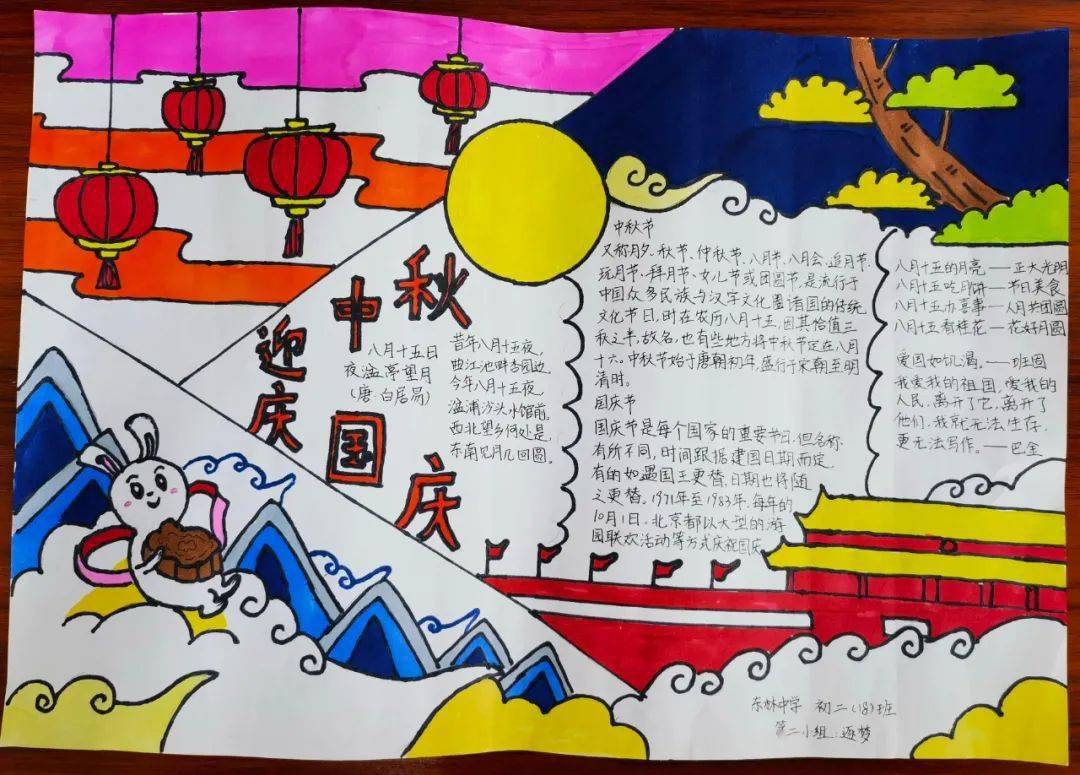 迎中秋
庆国庆
八月十五日
夜湓亭望月
(唐·白居易)
昔年八月十五夜,
曲江池畔杏园边
今年八月十五夜,
湓浦沙头水馆前。
西北望乡何处是,
东南见月几回圆。
中秋节
又称月夕、秋节、仲秋节、八月节、八月会、追月节、
玩月节、拜月节、女儿节或团圆节,是流行于
中国众多民族与汉字文化圈诸国的传统
文化节日,时在农历八月十五,因其恰值三
秋之半,故名,也有些地方将中秋节定在八月
十六。中秋节始于唐朝初年,盛行于宋朝至明
清时。
国庆节
国庆节是每个国家的重要节日,但名称
有所不同,时间跟据建国日期而定,
有的如遇国王更替,日期也将随
之更替。1971年至1983年,每年的
10月1日,北京都以大型的游
园联欢活动等方式庆祝国庆
八月十五的月亮——正大光明
八月十五吃月饼——节日美食
八月十五办喜事——人月共团圆
八月十五有桂花——花好月圆
爱国如饥渴。——班固
我爱我的祖国,爱我的
人民,离开了它,离开了
他们,我就无法生存,
更无法写作。——巴金
东林中学 初二(18)班
第二小组:逐梦